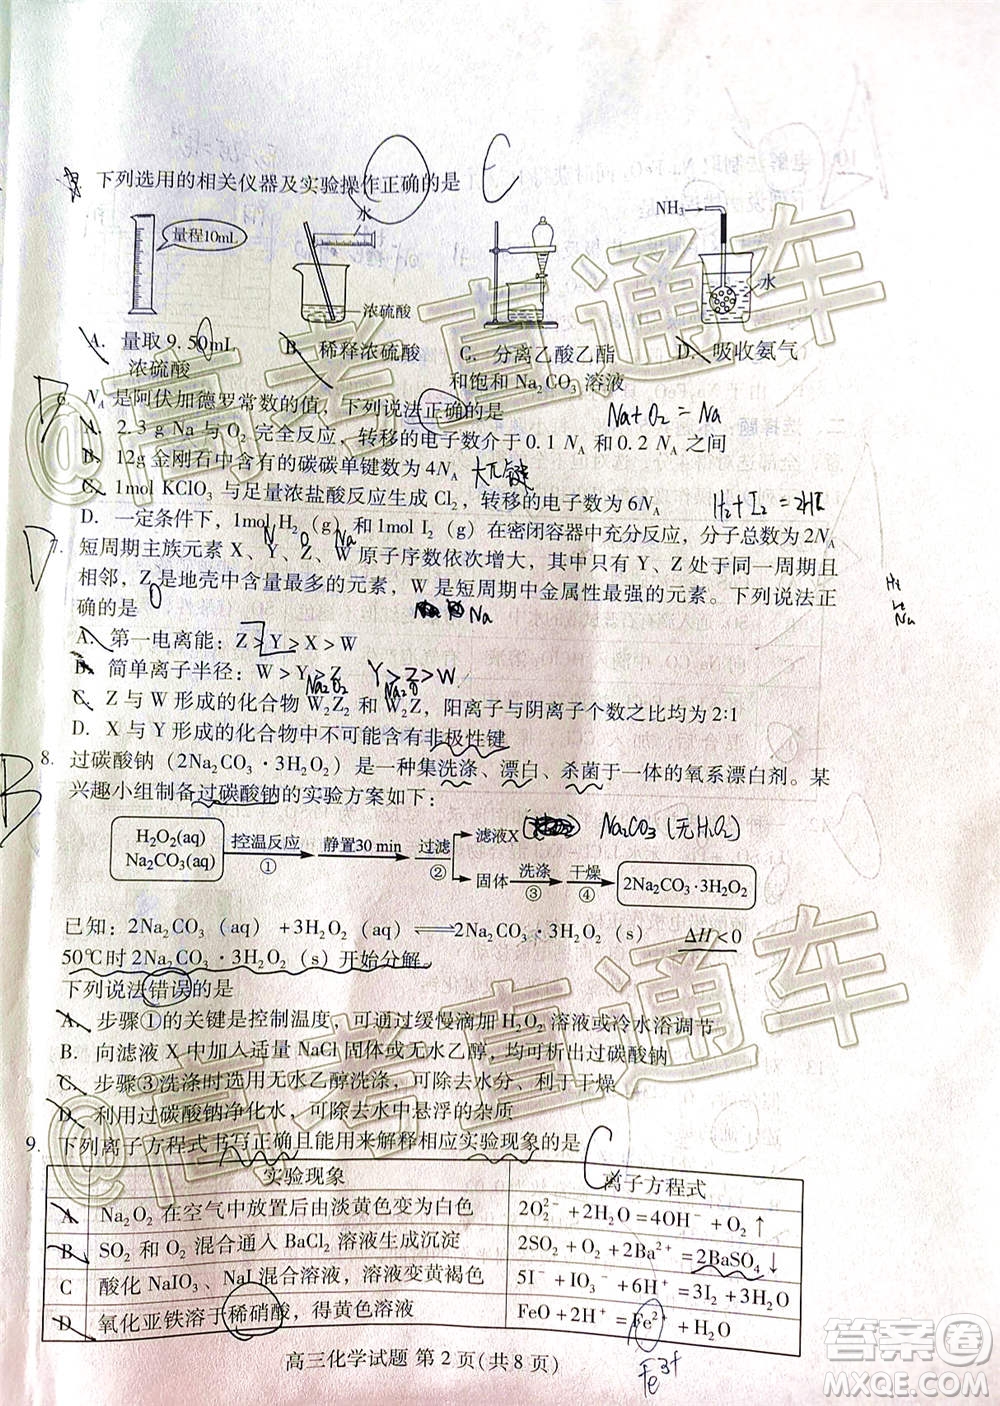 下列选用的相关仪器及实验操作正确的是 C
量程10mL
水
浓硫酸
NH₃
水
A. 量取9.50mL 浓硫酸
B. 稀释浓硫酸
C. 分离乙酸乙酯 和饱和Na₂CO₃溶液
D. 吸收氨气
6. N_A 是阿伏加德罗常数的值，下列说法正确的是
Na+O₂=Na
A. 2.3 g Na 与 O₂ 完全反应，转移的电子数介于 0.1 N_A 和 0.2 N_A 之间
B. 12g 金刚石中含有的碳碳单键数为 4N_A
C. 1mol KClO₃ 与足量浓盐酸反应生成 Cl₂，转移的电子数为 6N_A
H₂+I₂=2HI
D. 一定条件下，1mol H₂（g）和 1mol I₂（g）在密闭容器中充分反应，分子总数为 2N_A
D
N O Na
7. 短周期主族元素 X、Y、Z、W 原子序数依次增大，其中只有 Y、Z 处于同一周期且
相邻，Z 是地壳中含量最多的元素，W 是短周期中金属性最强的元素。下列说法正
确的是
O
Na
A. 第一电离能：Z＞Y＞X＞W
B. 简单离子半径：W＞Y＞Z
Y>Z>W
Na₂O₂
Na₂O
C. Z 与 W 形成的化合物 W₂Z₂ 中，阳离子与阴离子个数之比均为 2:1
D. X 与 Y 形成的化合物中不可能含有非极性键
B
8. 过碳酸钠（2Na₂CO₃·3H₂O₂）是一种集洗涤、漂白、杀菌于一体的氧系漂白剂。某
兴趣小组制备过碳酸钠的实验方案如下：
H₂O₂(aq)
Na₂CO₃(aq)
控温反应
①
静置30 min
过滤
②
滤液X
Na₂CO₃(无H₂O₂)
固体
洗涤
③
干燥
④
2Na₂CO₃·3H₂O₂
已知：2Na₂CO₃（aq）+3H₂O₂（aq）⇌2Na₂CO₃·3H₂O₂（s） ΔH＜0
50℃时 2Na₂CO₃·3H₂O₂（s）开始分解
下列说法错误的是
A. 步骤①的关键是控制温度，可通过缓慢滴加 H₂O₂ 溶液或冷水浴调节
B. 向滤液 X 中加入适量 NaCl 固体或无水乙醇，均可析出过碳酸钠
C. 步骤③洗涤时选用无水乙醇洗涤，可除去水分、利于干燥
D. 利用过碳酸钠净化水，可除去水中悬浮的杂质
9. 下列离子方程式书写正确且能用来解释相应实验现象的是 C
实验现象 离子方程式
A Na₂O₂ 在空气中放置后由淡黄色变为白色 2O₂²⁻+2H₂O=4OH⁻+O₂↑
B SO₂ 和 O₂ 混合通入 BaCl₂ 溶液生成沉淀 2SO₂+O₂+2Ba²⁺=2BaSO₄↓
C 酸化 NaIO₃、NaI 混合溶液，溶液变黄褐色 5I⁻+IO₃⁻+6H⁺=3I₂+3H₂O
D 氧化亚铁溶于稀硝酸，得黄色溶液 FeO+2H⁺=Fe²⁺+H₂O
Fe³⁺
高三化学试题 第 2 页(共 8 页)
@高考直通车
@高考直通车
答案圈
MXQE.COM